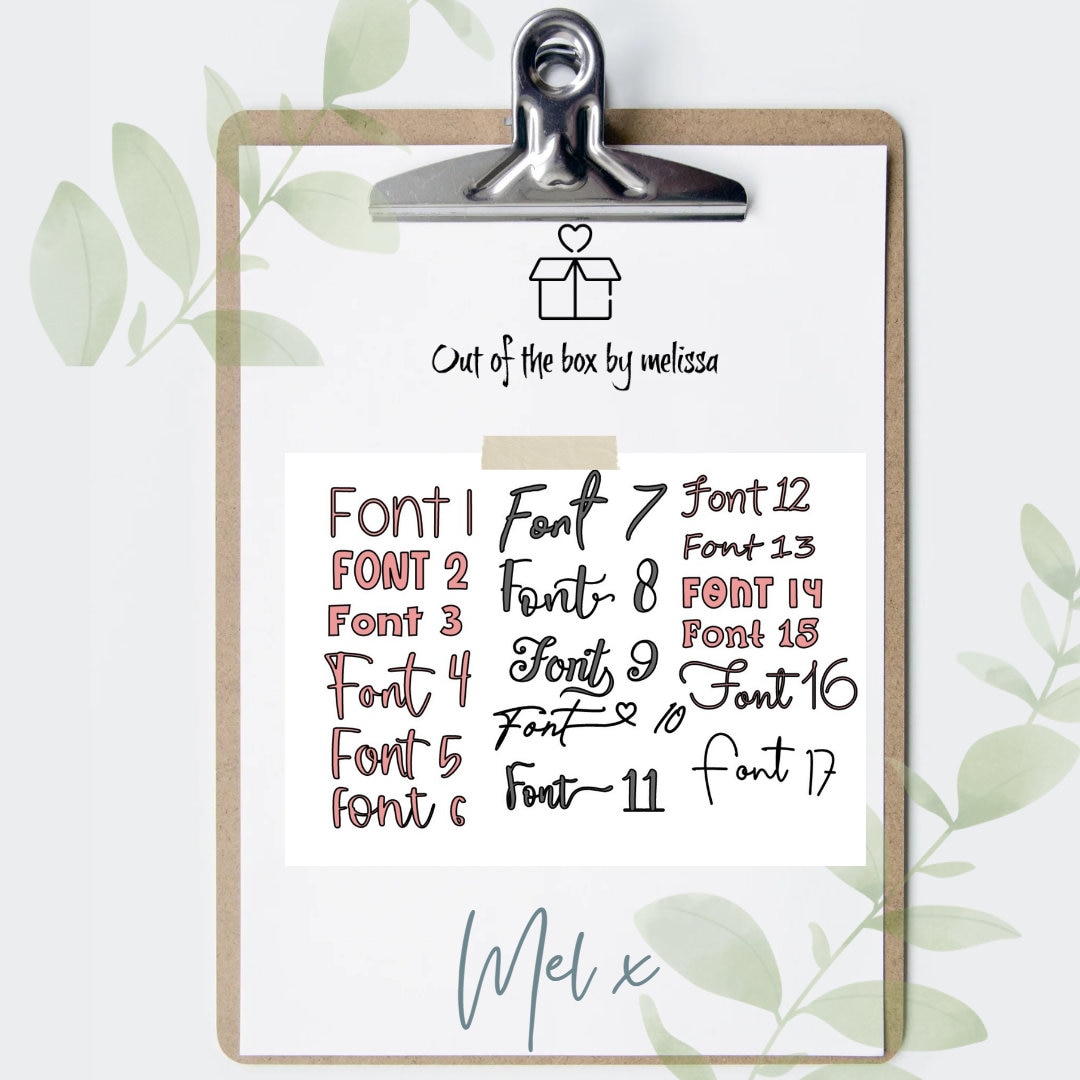 Out of the box by melissa
Font 1
FONT 2
Font 3
Font 4
Font 5
Font 6
Font 7
Font 8
Font 9
Font 10
Font 11
Font 12
Font 13
FONT 14
Font 15
Font 16
Font 17
Mel x